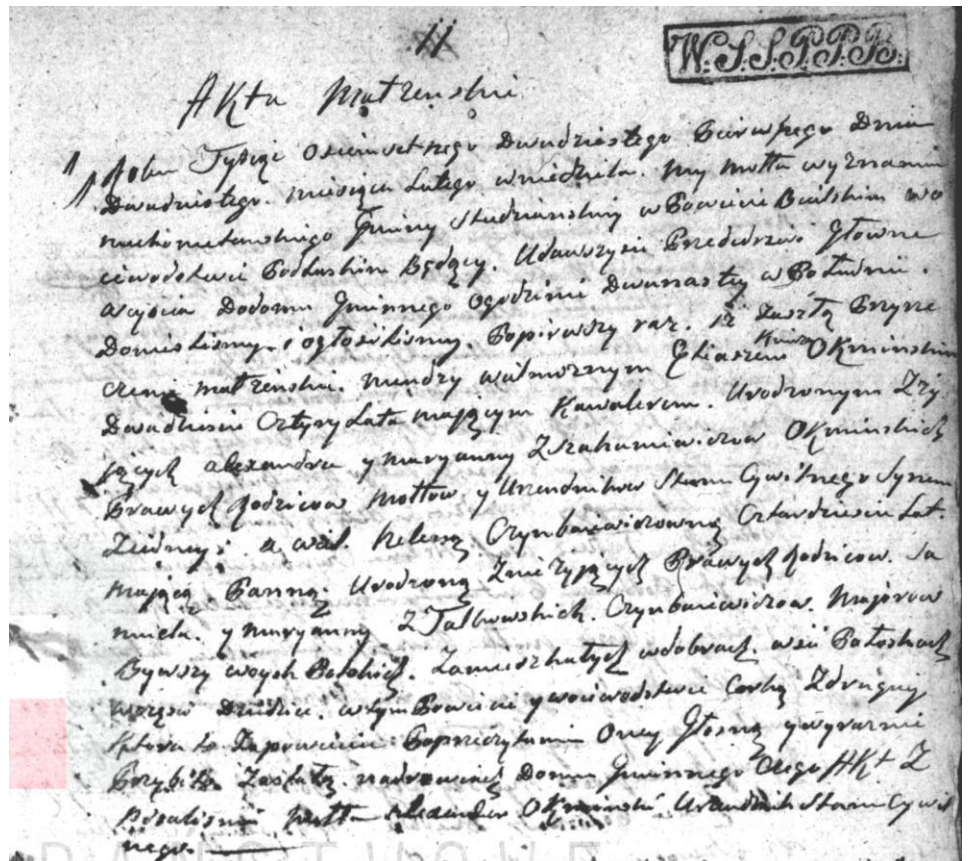 11
W.S.S.P.P.B.
Akta Małżenskie
1 Roku Tysiąc Osiemsetnego Dwudziestego Pierwszego Dnia
Dwudziestego. miesiąca Lutego w niedziela. my mołła wyznania
machometanskiego Gminy Studzianskiy w Powiecie Bialskim wo
iewodztwie Podlaskim Będący. Udawszysie Przededrzwi Głowne
wcyścia Dodomu Gminnego Ogodzinie Dwunastey w Południe.
Doniesliśmy i ogłosiliśmy. Popirwszy raz. iż Zaszłą Przyrze
czenie małżenskie. miendzy wielmoznym Eliaszem Okminskim
Dwadziescie Cztyry Lata mającym Kawalerem. Urodzonym Zży
jących alexandra y maryanny Z Okminskich
Prawych Rodzicow Mołłow y Urzendnikow Stanu Cywilnego Synem
Ziedney: a wiel. Heleną Czymbaiewiczowną Czterdziescie Lat.
mającą. Panną. Urodzoną Znieżyjących Prawych Rodzicow. Sa
muela. y maryanny Z Talkowskich. Czymbaiewiczow. Majorow
Bywszy woysk Polskich. Zamieszkałych wdobrach. wsi Połoskach
Dziedzice. wtym Powiecie y woiewodztwie Corką Zdrugiey
Ktora to Zapowiedz Poprzeczytaniu Oney Głosną ywyraznie
Przybitą Zastała nadrzwiach Domu Gminnego Czego Akt Z
Pisalismy Mołła Alexander Okminski Urzendnik Stanu Cywil
nego.